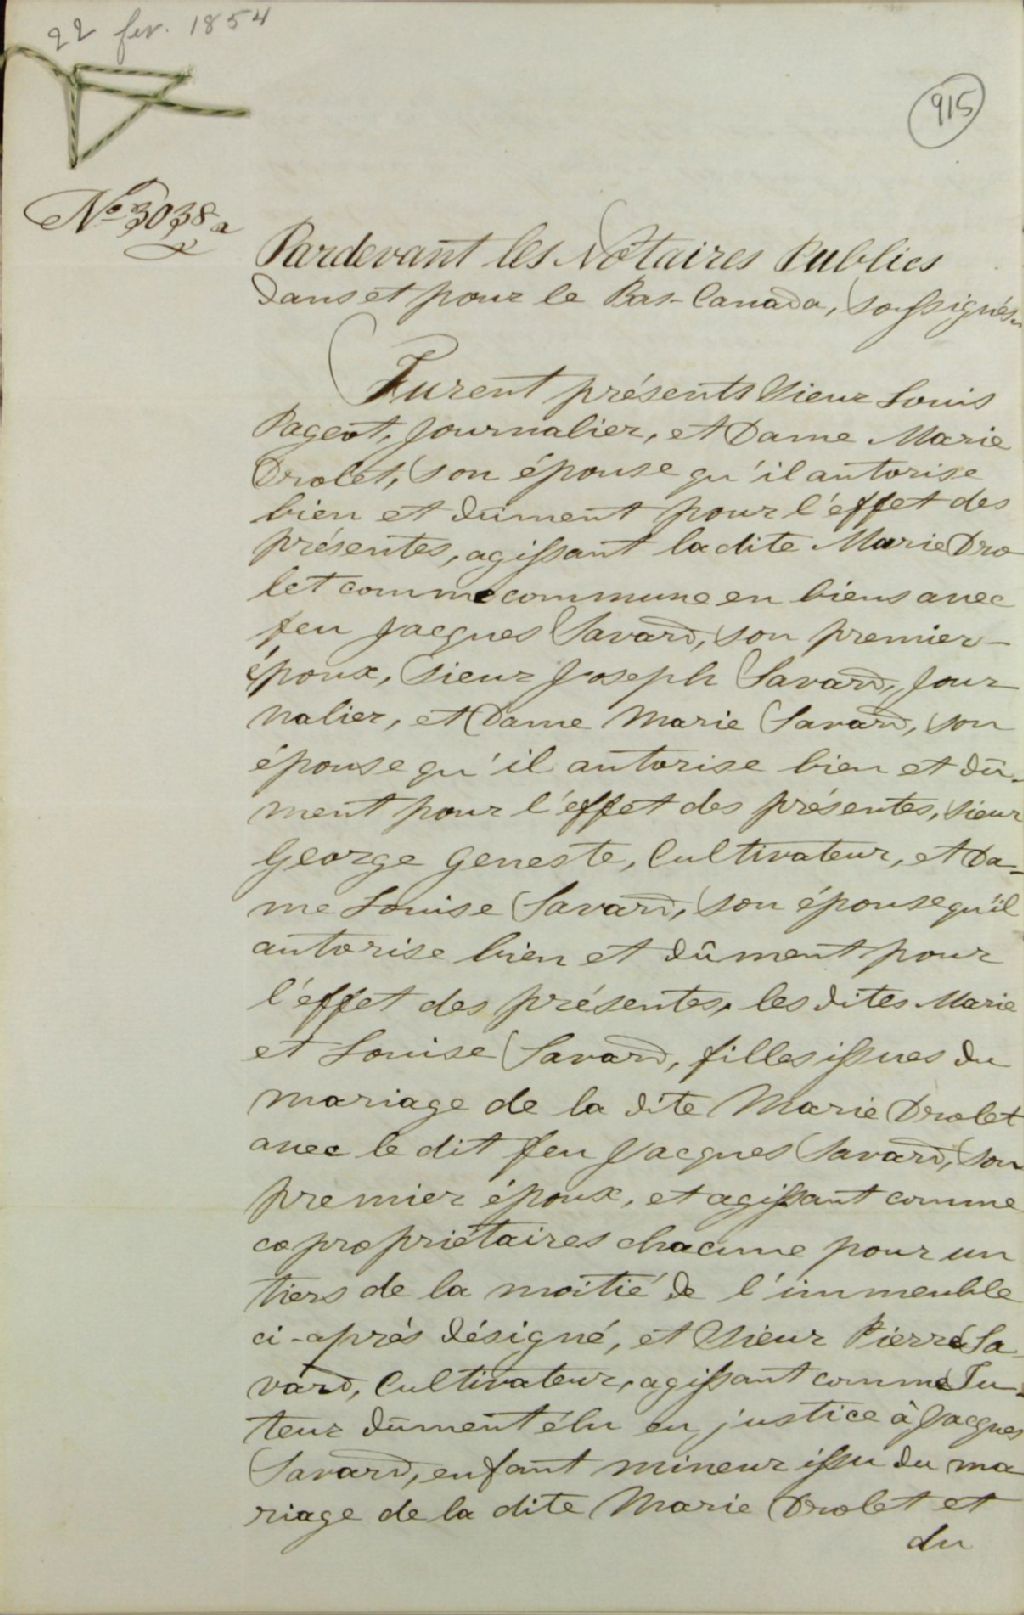 22 fev. 1854
915
No 3038 a
Pardevant les Notaires Publics
dans et pour le Bas-Canada, soussignés
Furent présents Sieur Louis
Pageot, Journalier, et Dame Marie
Drolet, son épouse qu'il autorise
bien et dûment pour l'effet des
présentes, agissant la dite Marie Dro
let comme commune en biens avec
feu Jacques Savard, son premier
époux, Sieur Joseph Savard, Jour
nalier, et Dame Marie Savard, son
épouse qu'il autorise bien et dû-
ment pour l'effet des présentes, Sieur
George Geneste, Cultivateur, et Da-
me Louise Savard, son épouse qu'il
autorise bien et dûment pour
l'effet des présentes, les dites Marie
et Louise Savard, filles issues du
mariage de la dite Marie Drolet
avec le dit feu Jacques Savard, son
premier époux, et agissant comme
copropriétaires chacune pour un
tiers de la moitié de l'immeuble
ci-après désigné, et Sieur Pierre Sa-
vard, Cultivateur, agissant comme Tu-
teur dûment élu en justice à Jacques
Savard, enfant mineur issu du ma
riage de la dite Marie Drolet et
du